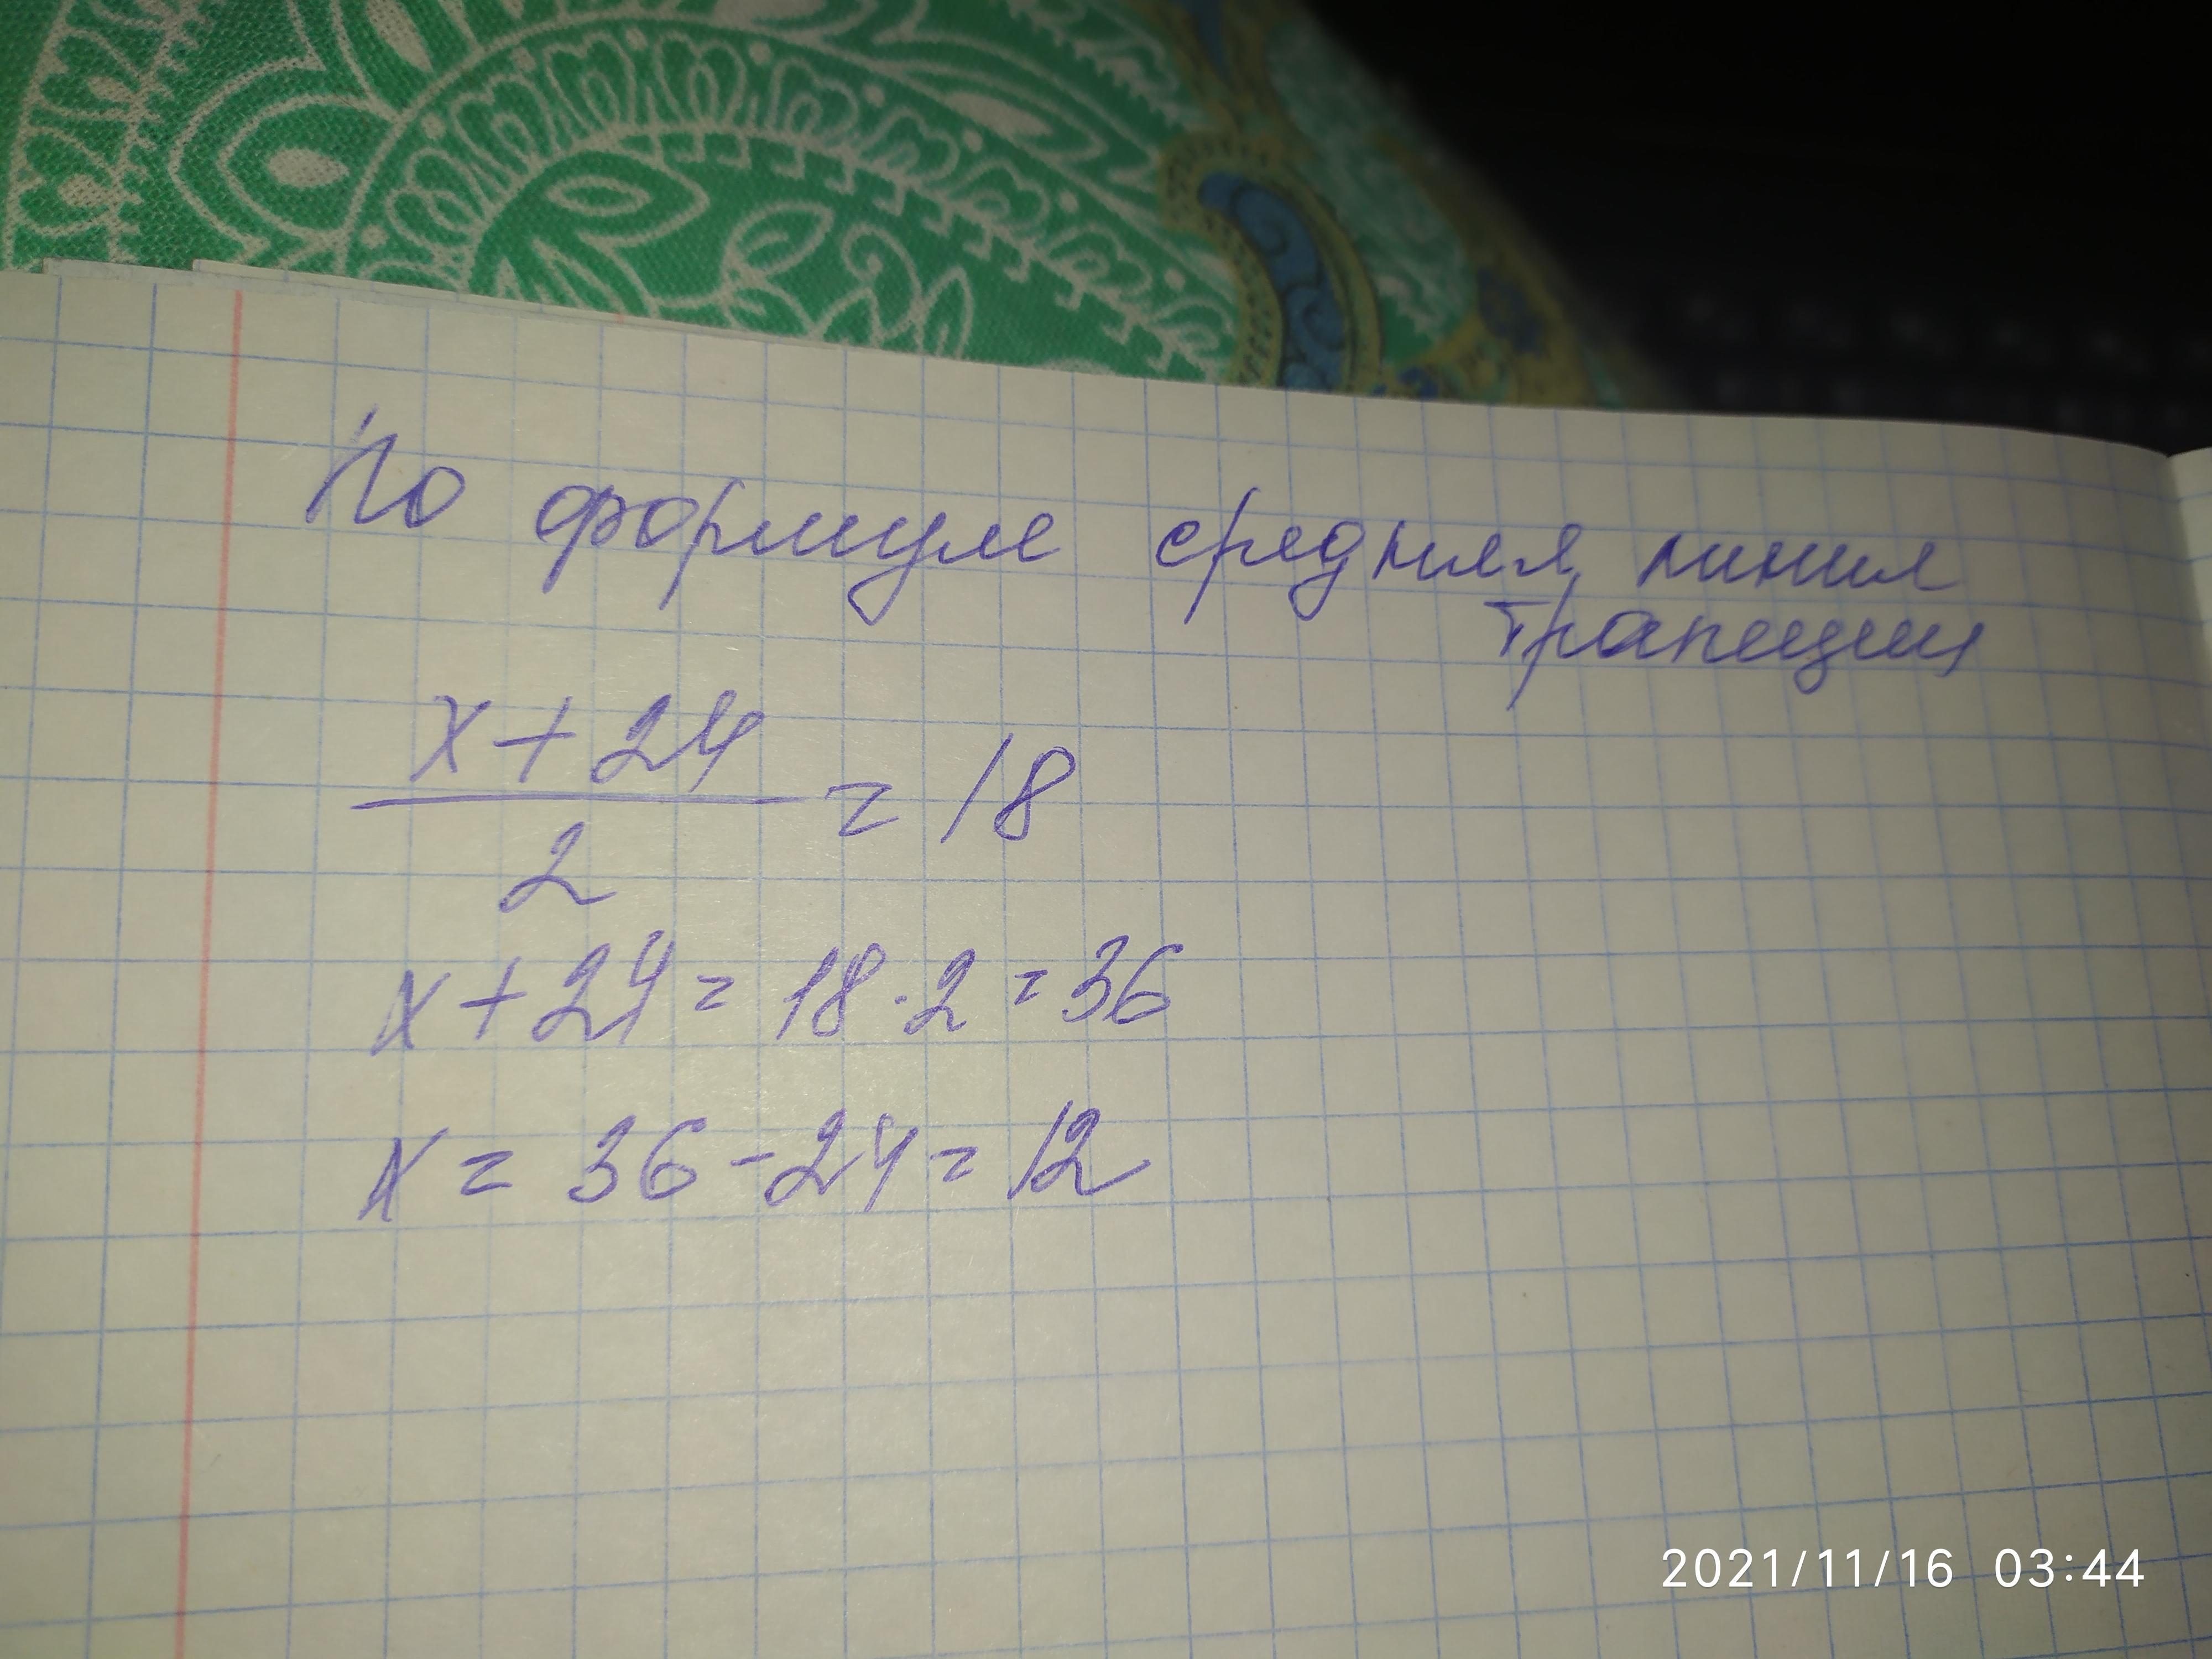 По формуле средняя линия
трапеции
x + 24
2
= 18
x + 24 = 18 · 2 = 36
x = 36 - 24 = 12
2021/11/16 03:44